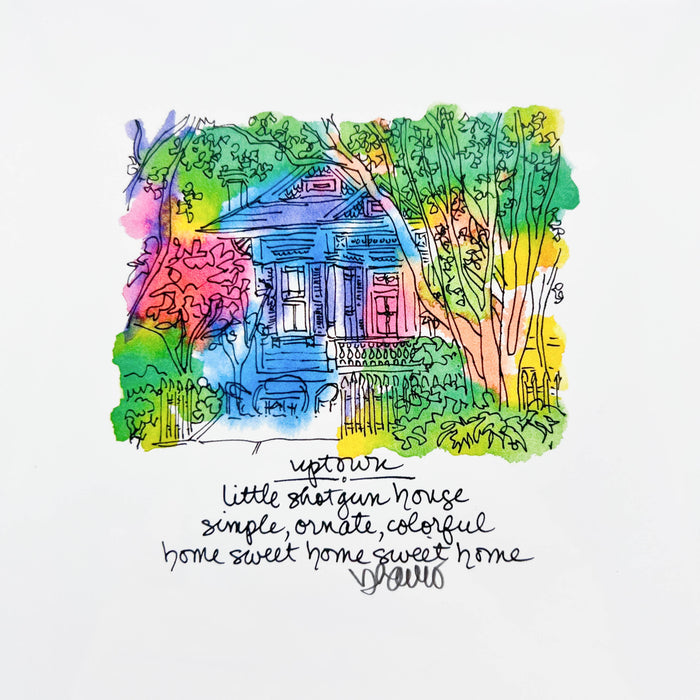 uptown
little shotgun house
simple, ornate, colorful
home sweet home sweet home